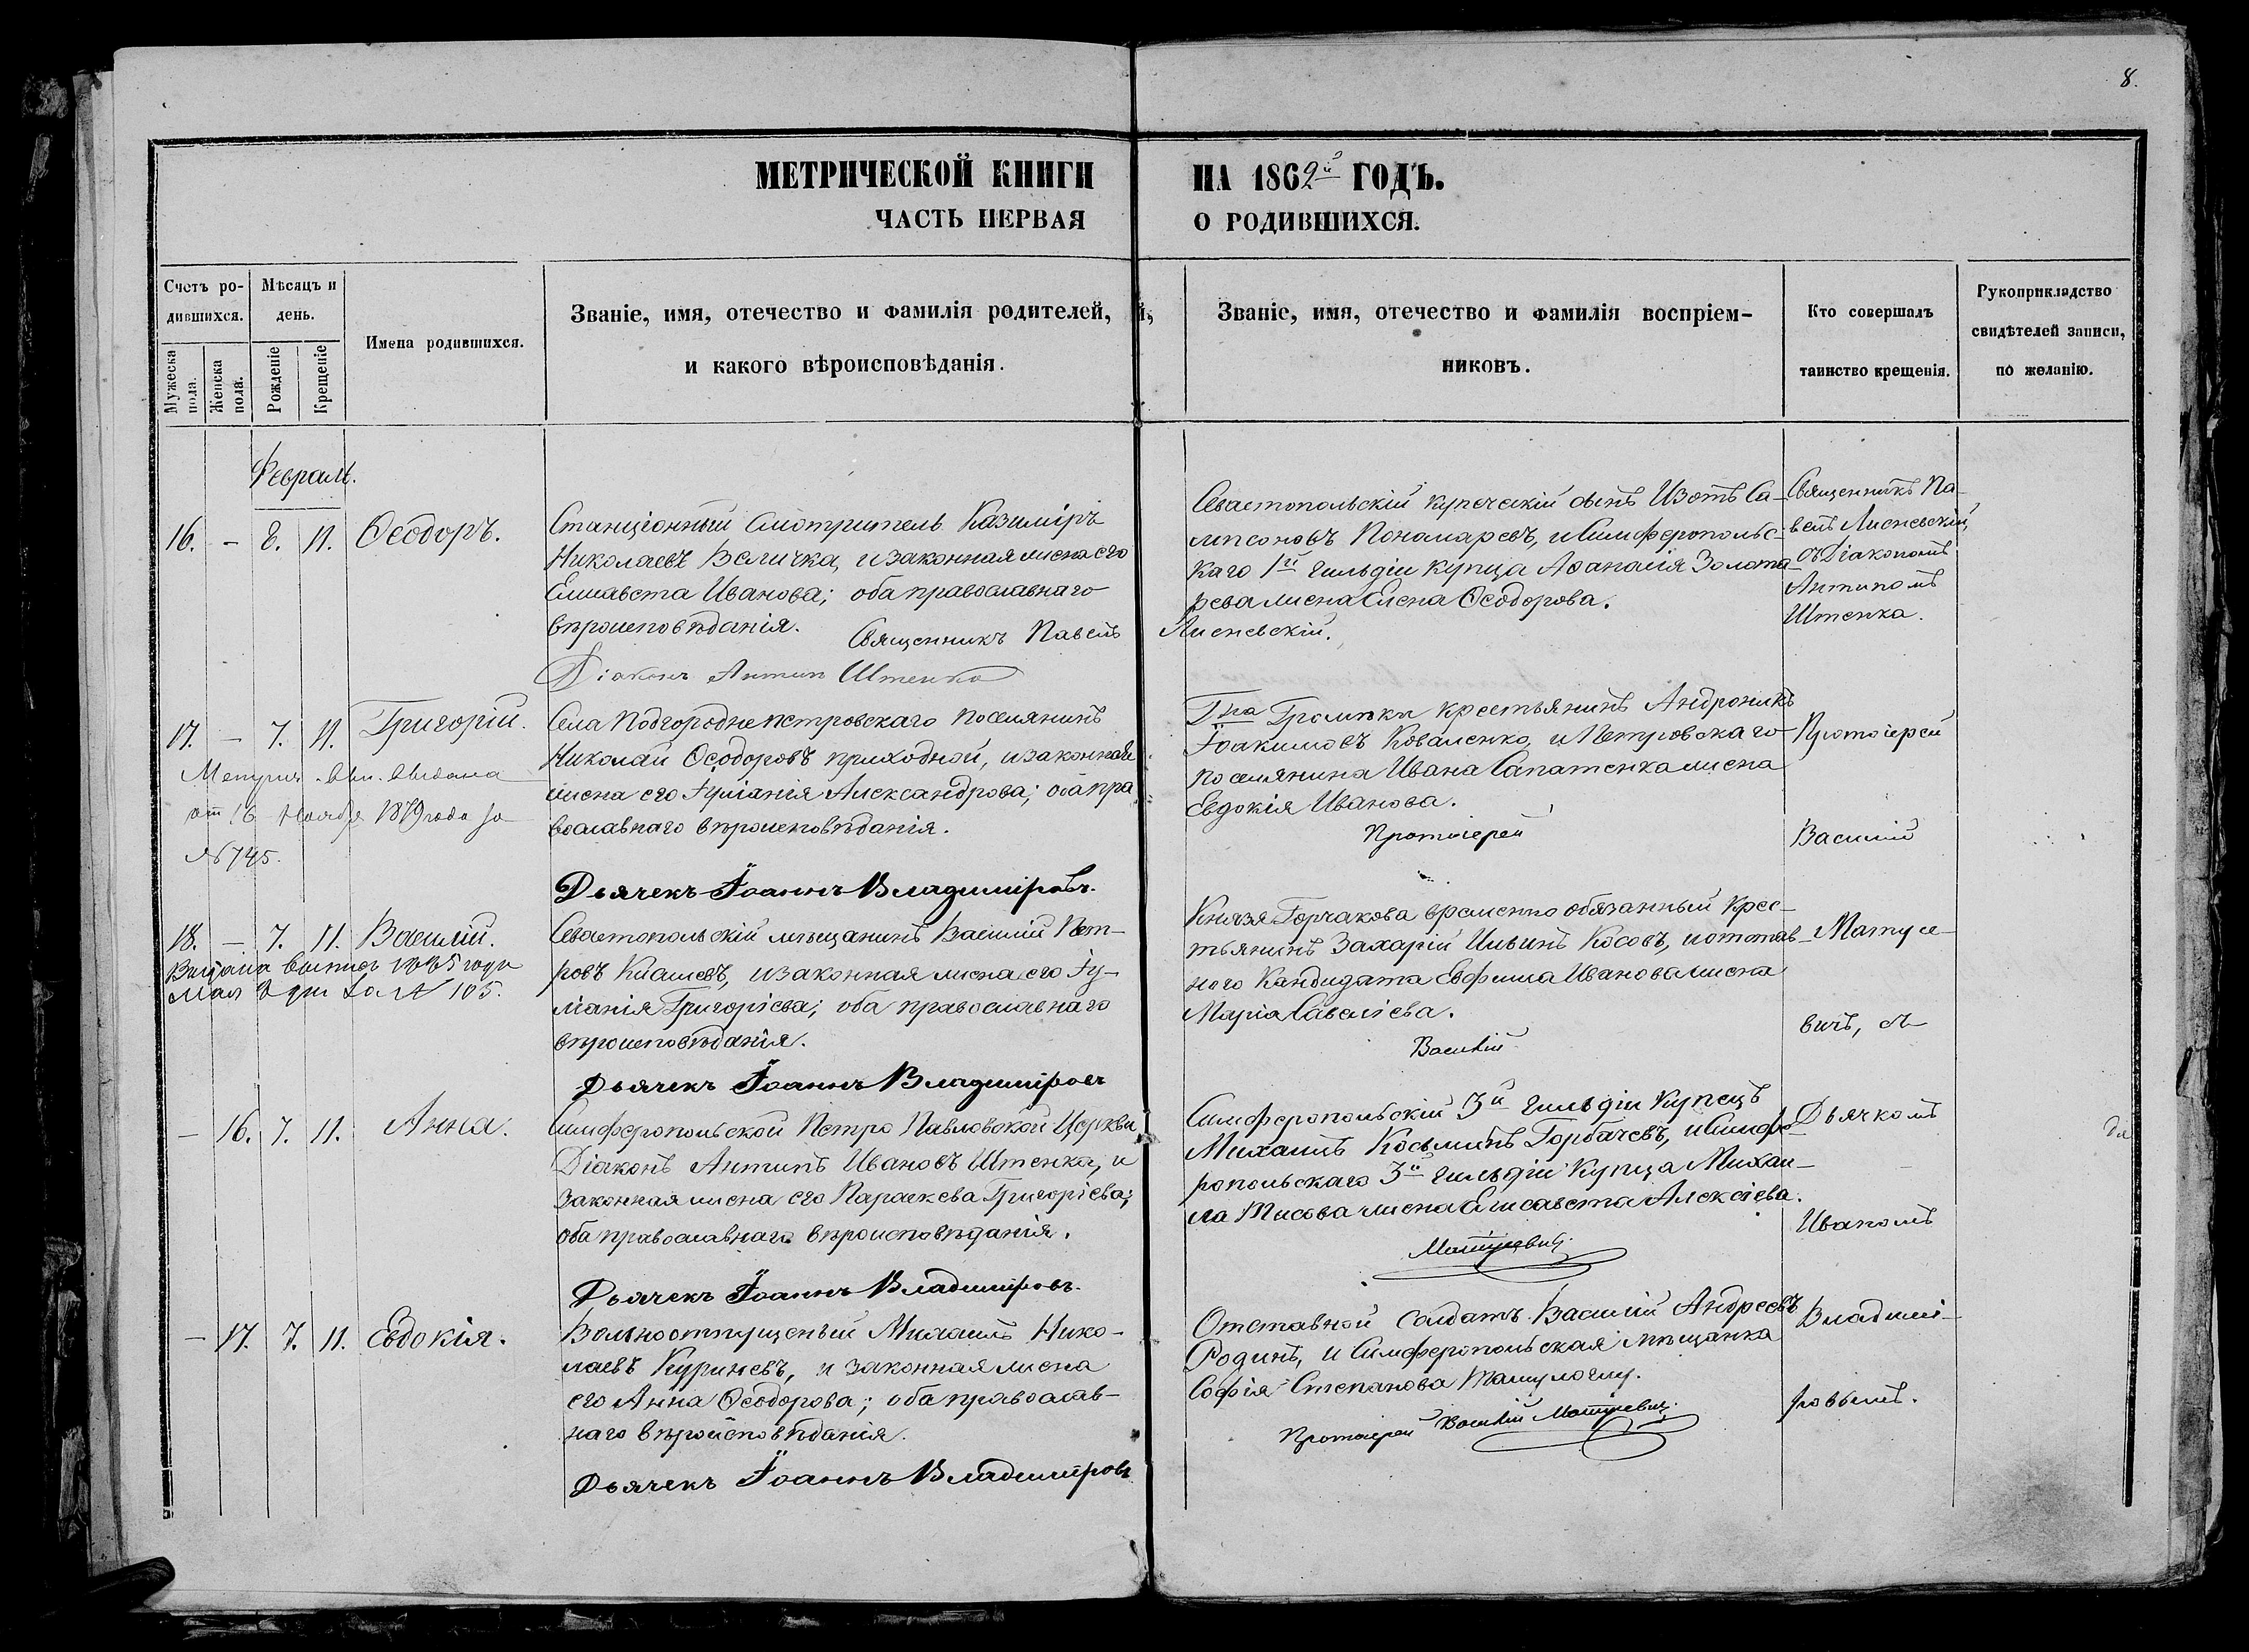 8.
МЕТРИЧЕСКОЙ КНИГИ НА 1862й ГОДЪ.
ЧАСТЬ ПЕРВАЯ О РОДИВШИХСЯ.
Счетъ ро-
дившихся.
Мужеска пола.
Женска пола.
Мѣсяцъ и
день.
Рожденіе
Крещеніе
Имена родившихся.
Званіе, имя, отечество и фамилія родителей,
и какого вѣроисповѣданія.
Званіе, имя, отечество и фамилія воспріем-
никовъ.
Кто совершалъ
таинство крещенія.
Рукоприкладство
свидѣтелей записи,
по желанію.
Февраль.
16. – 8. 11. Ѳеодоръ.
Станціонный Смотритель Казиміръ
Николаевъ Величка, и законная жена его
Елисавета Иванова; оба православнаго
вѣроисповѣданія.
Священникъ Павелъ Лисневскій.
Діаконъ Антип Штенко
Севастопольскій купеческій сынъ Изотъ Са-
мпсоновъ Пономаревъ, и Симферопольс-
каго 1й гильдіи купца Аѳанасія Золота-
рева жена Елена Ѳеодорова.
Священникъ Па-
велъ Лисневскій,
съ Діакономъ
Антипомъ
Штенка.
17. – 7. 11. Григорій.
от 16 Ноября 1879 года за
№ 745.
Села Подгороднепетровскаго поселянинъ
Николай Ѳеодоровъ приходной, и законная
жена его Іуліанія Александрова; оба пра
вославнаго вѣроисповѣданія.
Дьячекъ Іоаннъ Владиміровъ.
Гна Громѣки крестьянинъ Андроникъ
Іоакимовъ Коваленко, и Петровскаго
поселянина Ивана Сапатенка жена
Евдокія Иванова.
Протоіерей
Протоіерей
Василій
18. – 7. 11. Василій.
Мая 8 дня за № 105.
Севастопольскій мѣщанинъ Василій Пет-
ровъ Киашевъ, и законная жена его Іу-
ліанія Григоріева; оба православнаго
вѣроисповѣданія.
Дьячекъ Іоаннъ Владиміровъ
Князя Горчакова временно обязанный крес-
тьянинъ Захарій Ильинъ Косовъ, и отстав-
ного Кандидата Евфима Иванова жена
Марія Савеліева.
Василій
Матусе-
вичъ, съ
– 16. 7. 11. Анна.
Симферопольской Петро Павловской Церкви
Діаконъ Антипъ Ивановъ Штенка, и
законная жена его Параскева Григоріева;
оба православнаго вѣроисповѣданія.
Дьячекъ Іоаннъ Владиміровъ.
Симферопольскій 3й гильдіи Купецъ
Михаилъ Косьминъ Горбачевъ, и Симфе-
ропольскаго 3й гильдіи Купца Михаи-
ла Тисова жена Елисавета Алексіева.
Матусевичъ
Дьячкомъ
Иваномъ
– 17. 7. 11. Евдокія.
Вольноотпущеный Михаилъ Нико-
лаевъ Куриневъ, и законная жена
его Анна Ѳеодорова; оба православ-
наго вѣроисповѣданія.
Дьячекъ Іоаннъ Владиміровъ
Отставной солдатъ Василій Андреевъ
Родинъ, и Симферопольская мѣщанка
Софія Степанова
Протоіерей Василій Матусевичъ
Владимі-
ровымъ.